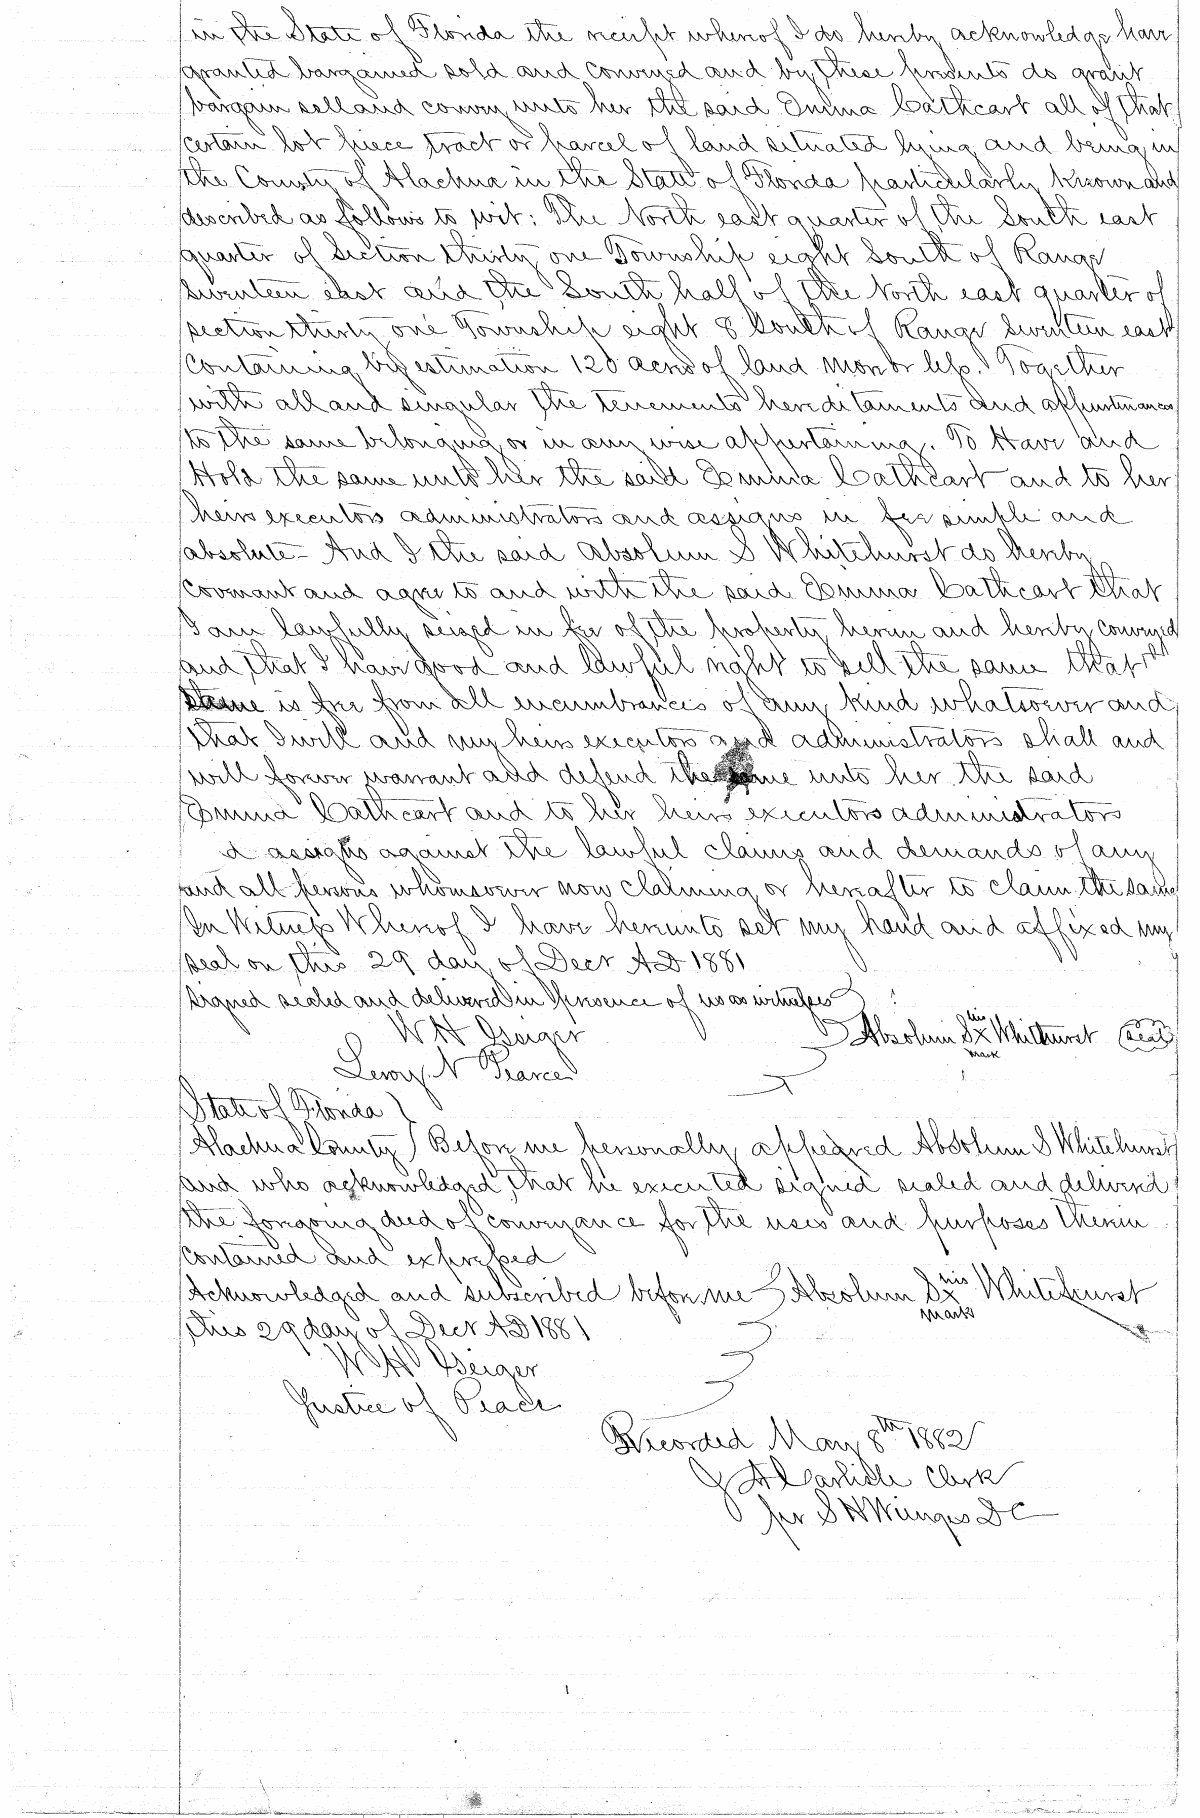 in the State of Florida the receipt whereof I do hereby acknowledge have
granted bargained sold and conveyed and by these presents do grant
bargain sell and convey unto her the said Emma Cathcart all of that
certain lot piece tract or parcel of land situated lying and being in
the County of Alachua in the State of Florida particularly known and
described as follows to wit: The North east quarter of the South east
quarter of Section thirty one Township eight South of Range
seventeen east and the South half of the North east quarter of
section thirty one Township eight 8 South of Range Seventeen east
containing by estimation 120 acres of land more or less. Together
with all and singular the tenements hereditaments and appurtenances
to the same belonging or in any wise appertaining. To Have and
Hold the same unto her the said Emma Cathcart and to her
heirs executors administrators and assigns in fee simple and
absolute - And I the said Absolum S Whitehurst do hereby
covenant and agree to and with the said Emma Cathcart that
I am lawfully seized in fee of the property herein and hereby conveyed
and that I have good and lawful right to sell the same that
same is free from all encumbrances of any kind whatsoever and
that I will and my heirs executors and administrators shall and
will forever warrant and defend the same unto her the said
Emma Cathcart and to her heirs executors administrators
d assigns against the lawful claims and demands of any
and all persons whomsoever now claiming or hereafter to claim the same
In Witness Whereof I have hereunto set my hand and affixed my
seal on this 29 day of Decr AD 1881
Signed sealed and delivered in presence of us as witnesses
W H Geiger
Absolum S his x mark Whitehurst (Seal)
Leroy N Pearce
State of Florida
Alachua County Before me personally appeared Absolum S Whitehurst
and who acknowledged that he executed signed sealed and delivered
the foregoing deed of conveyance for the uses and purposes therein
contained and expressed
Acknowledged and subscribed before me Absolum S his x mark Whitehurst
this 29 day of Decr AD 1881
W H Geiger
Justice of Peace
Recorded May 8th 1882
J A Carlisle Clerk
per S H Wienges DC